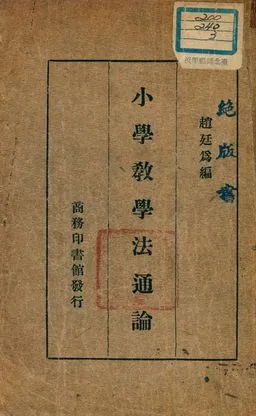 絕版書
趙廷爲編
小學教學法通論
商務印書館發行
200
240
3